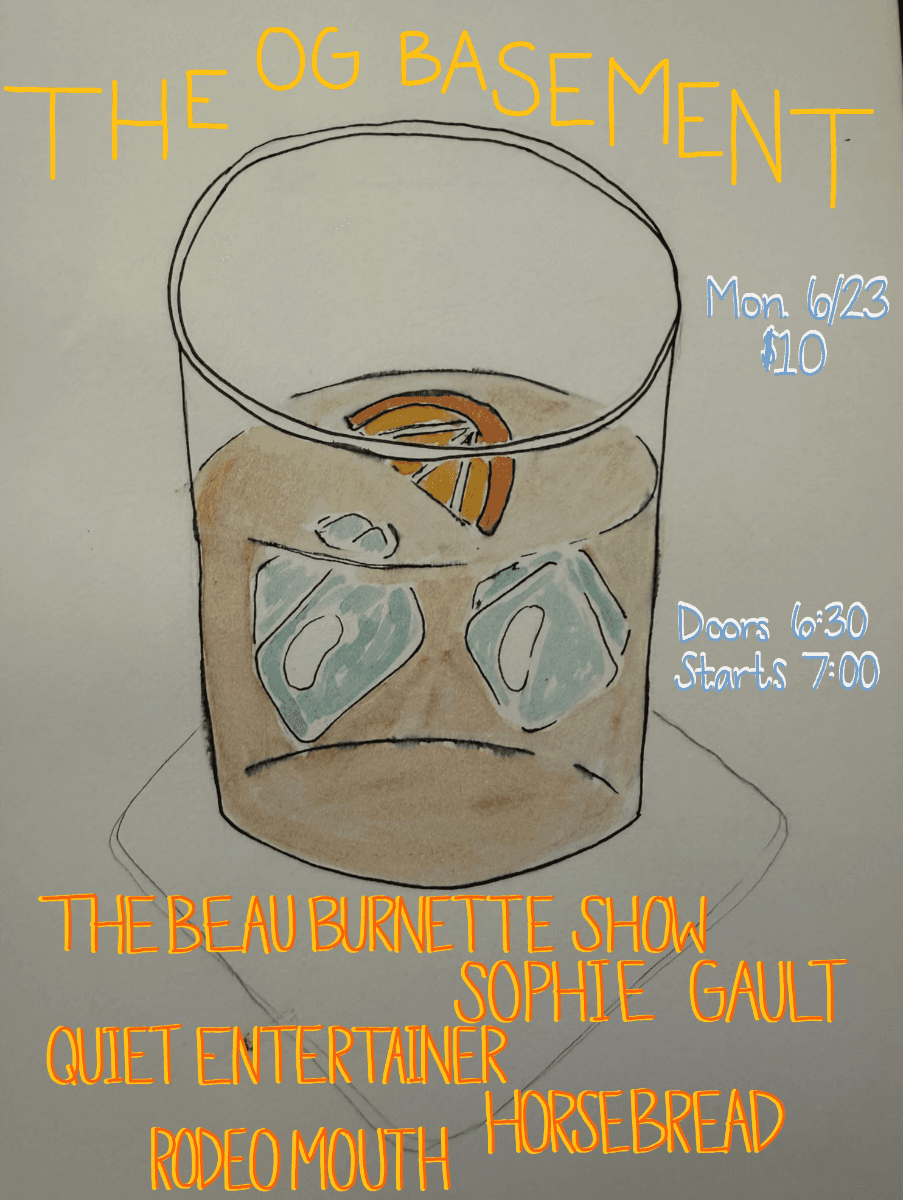 THE OG BASEMENT
Mon. 6/23
$10
Doors 6:30
Starts 7:00
THE BEAU BURNETTE SHOW
SOPHIE GAULT
QUIET ENTERTAINER
HORSEBREAD
RODEO MOUTH